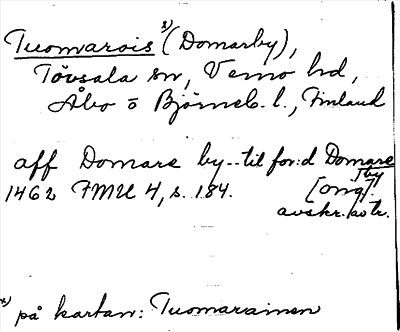 Tuomarois x) (Domarby),
Tövsala sn, Vemo hd,
Åbo o Björneb. l., Finland
aff Domare by -- til for:d Domare
by
1462 FMU 4, s. 184. [orig].
avskr. av tr.
x) på kartan: Tuomarainen